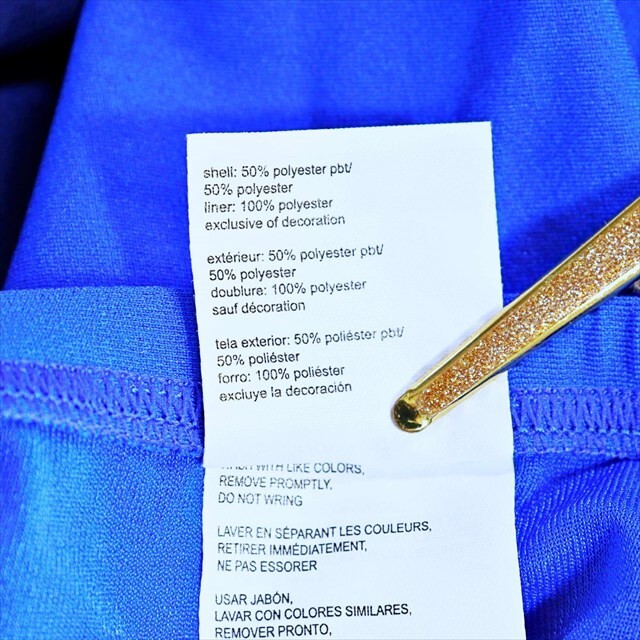 shell: 50% polyester pbt/
50% polyester
liner: 100% polyester
exclusive of decoration
extérieur: 50% polyester pbt/
50% polyester
doublure: 100% polyester
sauf décoration
tela exterior: 50% poliéster pbt/
50% poliéster
forro: 100% poliéster
excluye la decoración
WITH LIKE COLORS,
REMOVE PROMPTLY,
DO NOT WRING
LAVER EN SÉPARANT LES COULEURS,
RETIRER IMMÉDIATEMENT,
NE PAS ESSORER
USAR JABÓN,
LAVAR CON COLORES SIMILARES,
REMOVER PRONTO,